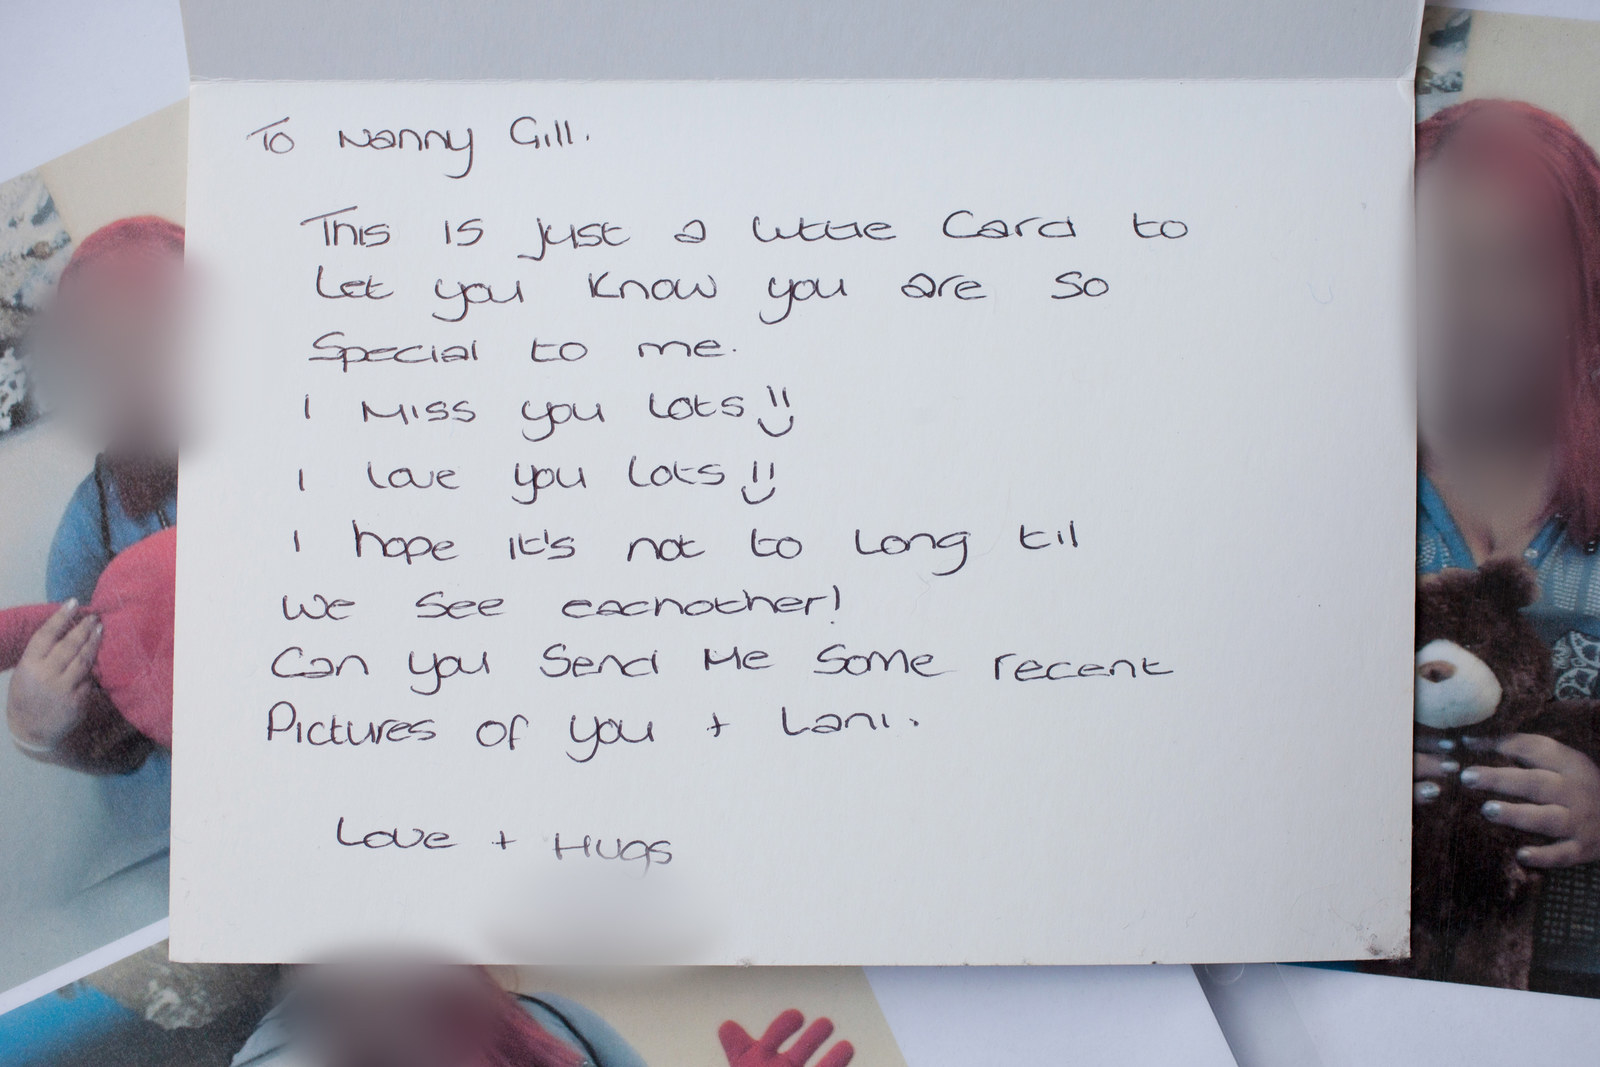 To Nanny Gill.
This is just a little card to
let you know you are so
special to me.
I miss you lots
I love you lots
I hope it's not to long til
we see eachother!
Can you send me some recent
pictures of you + Lani.
Love + Hugs